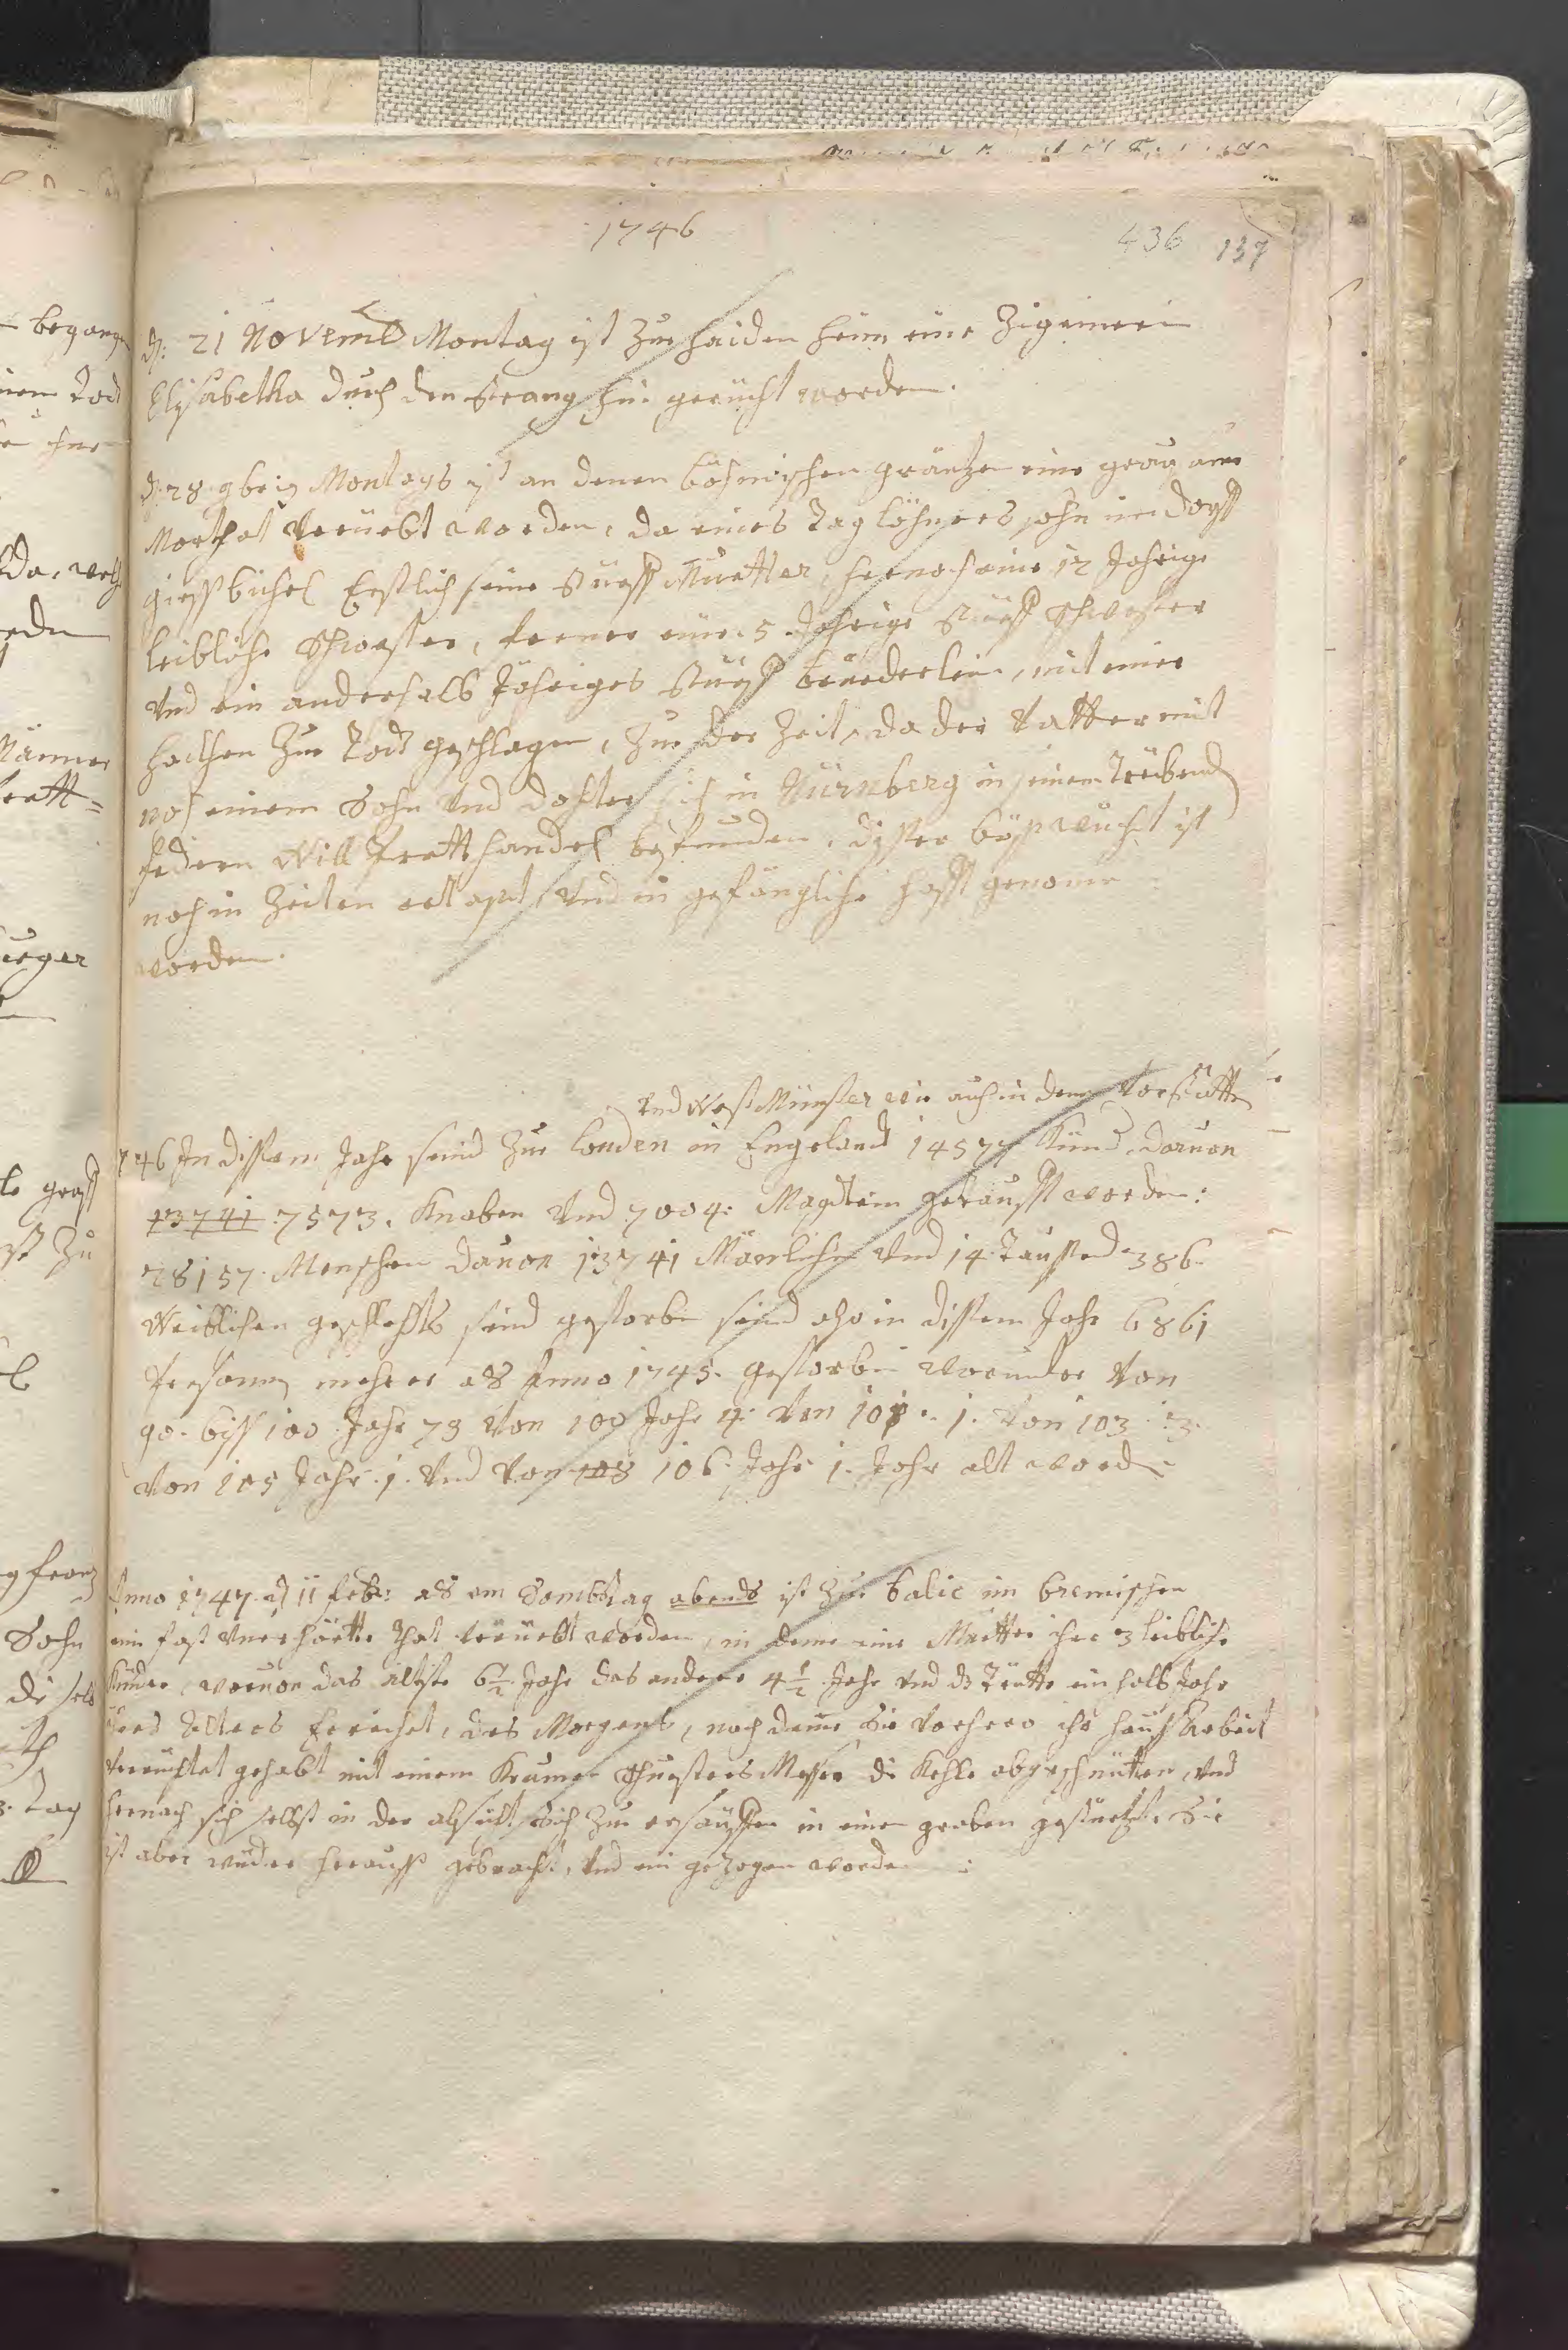 1746
436 137
d: 21 Novemb Montag ist zue Haidenheim eine Zigeinerin
Elisabetha durch den Strang hin gerücht worden.
d. 28 9bris Montags ist an denen böhmischen gräntzen eine grausame
Mortthat verüebt worden, da eines Taglöhners sohn im dorff
giesshibel Erstlich seine Stüeff Muetter, hernach eine 12 Jahrige
leibliche Schwester, ferner eine 5 Jahrige Stüeff Schwester
Vnd ein anderhalb Jähriges Stüeff brüederlein, mit einer
hackhen zue Todt geschlagen, zue der Zeit, da der Vatter mit
noch einem Sohn Vnd dochter sich in Nürnberg in seinem Treibend
federn Will handel befunden, disser bösswicht ist
noch in Zeiten ertapt Vnd in gefängliche hafft genomen
worden.
Vnd West Münster wie auch in denen Vorstätten
1746 In dissem Jahr seind zue Londen in Engeland 14577 Kind daruon
13741 7573. Knaben Vnd 7004: Magdlein getaufft worden:
28157. Menschen dauon 13741 Mänliche Vnd 14 Taussend 386
Weiblichen geschlechts seind gestorben seind also in dissem Jahr 6861
Personen mehrer als Anno 1745. gestorben worunder Von
90. biss 100 Jahr 73 Von 100 Jahr 4: Von 101. 1. Von 103 3.
Von 105 Jahr 1. Vnd Von 108 106. Jahr 1. Jahr alt worden
Anno 1747 d 11 feb: als am Sambstag abends ist zue balie im bremischen
ein fast Vnerhörte that verüebt worden, in deme eine Muetter ihre 3 leibliche
Kinder, woruon das älteste 6½ Jahr das andere 4½ Jahr vnd ds dritte ein halb Jahr
ihres Alters Erreichet, des Morgens, nach deme Sie Vorhero ihr hauss Arbeit
verrichtet gehabt mit einem Krumen Schuesters Messer die Kehle abgeschnitten, vnd
hernach sich selbst in der absicht sich zue ersäuffen in einen graben gestürtzt. Sie
ist aber wider herauss gebracht, Vnd ein gezogen worden :